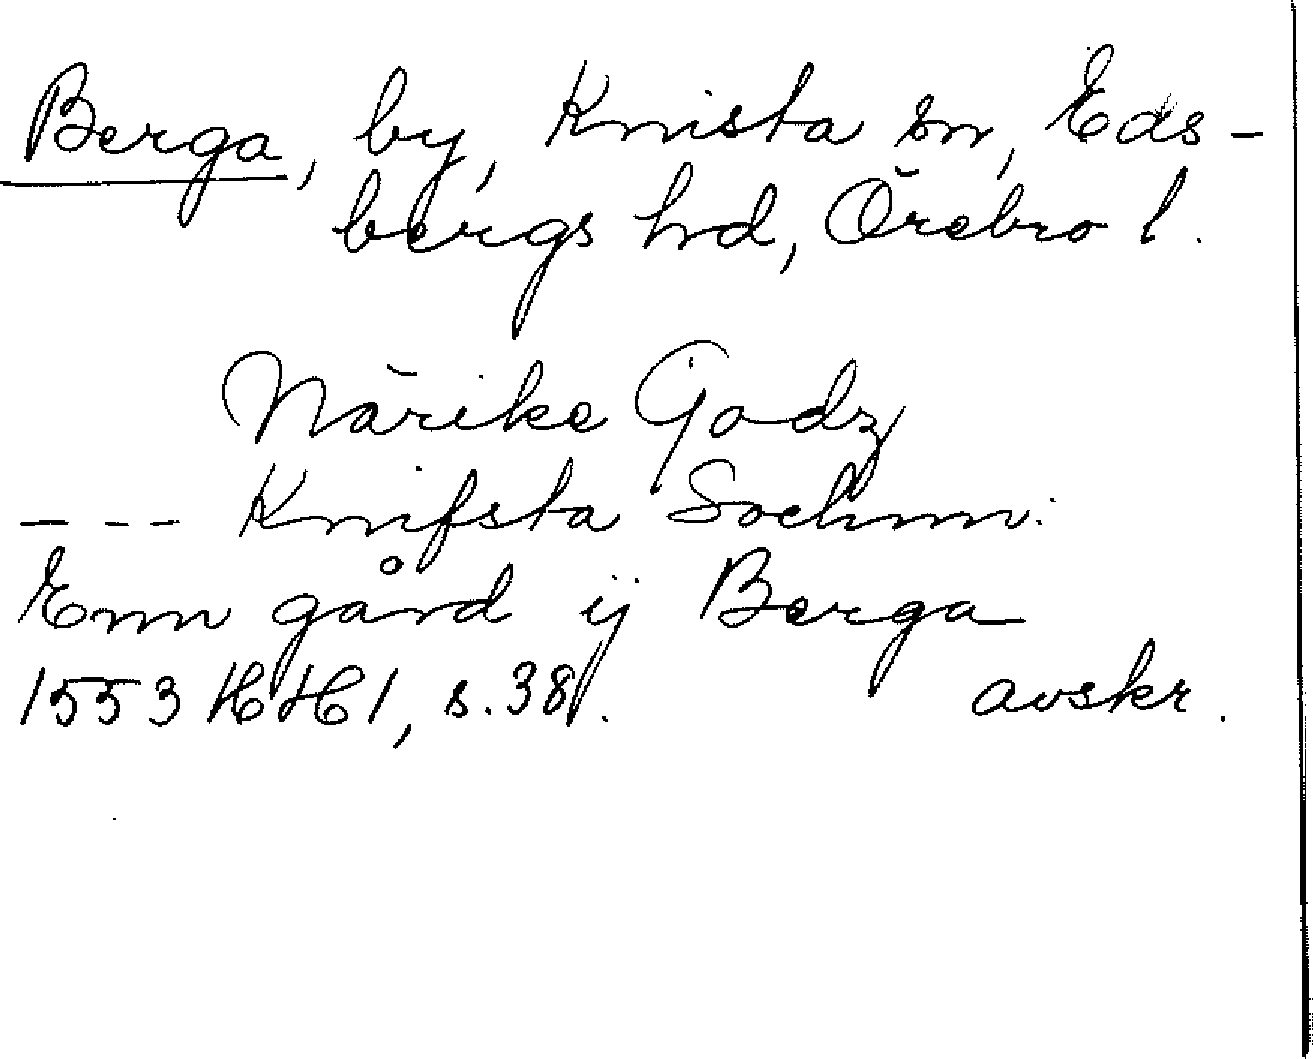 Berga, by, Knista sn, Eds-
bergs hd, Örebro l.
Närike Godz
- - - Knifsta Sochnn:
Enn gård ij Berga
1553 HH1, s. 38. avskr.